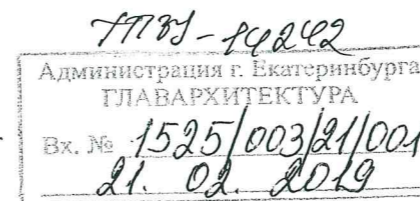 ГПЗУ-14242
Администрация г. Екатеринбурга
ГЛАВАРХИТЕКТУРА
Вх. № 1525/003/21/001
21. 02. 2019